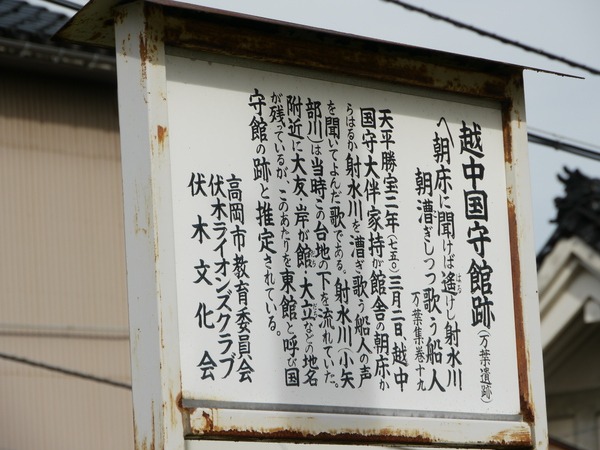 越中国守館跡（万葉遺跡）
へ朝床に聞けば遙けし射水川
はる
朝漕ぎしつつ歌う船人
万葉集巻十九
天平勝宝二年（七五〇）三月二日越中
国守大伴家持が館舎の朝床か
らはるか射水川を漕ぎ歌う船人の声
を聞いてよんだ歌である。射水川（小矢
部川）は当時この台地の下を流れていた。
附近に大友・岸が館・大立などの地名
が残っているが、このあたりを東館と呼び国
守館の跡と推定されている。
高岡市教育委員会
伏木ライオンズクラブ
伏木文化会